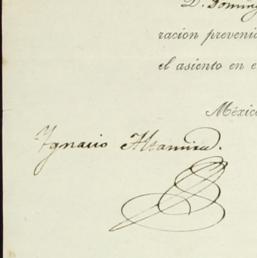 D. Doming
racion preveni
el asiento en e
Méxic
Ygnacio Altamira.